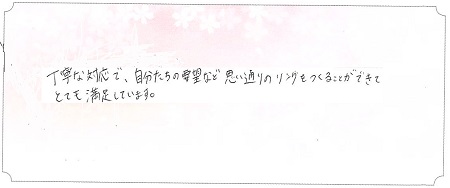 丁寧な対応で、自分たちの要望など思い通りのリングをつくることができて
とても満足しています。